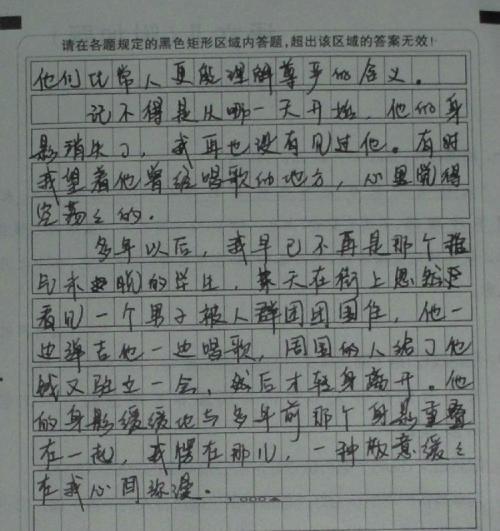 请在各题规定的黑色矩形区域内答题,超出该区域的答案无效!
他们比常人更能理解尊严的含义。
记不得是从哪一天开始,他的身
影消失了,我再也没有见过他。有时
我望着他曾经唱歌的地方,心里觉得
空荡々的.
多年以后,我早已不再是那个
的学生,某天在街上忽然
看见一个男子被人群团团围住,他一
边弹吉他一边唱歌,周围的人给了他
钱又驻立一会,然后才转身离开。他
的身影缓缓地与多年前那个身影重叠
在一起,我愣在那儿,一种敬意缓々
在我心间弥漫。
1,000▲